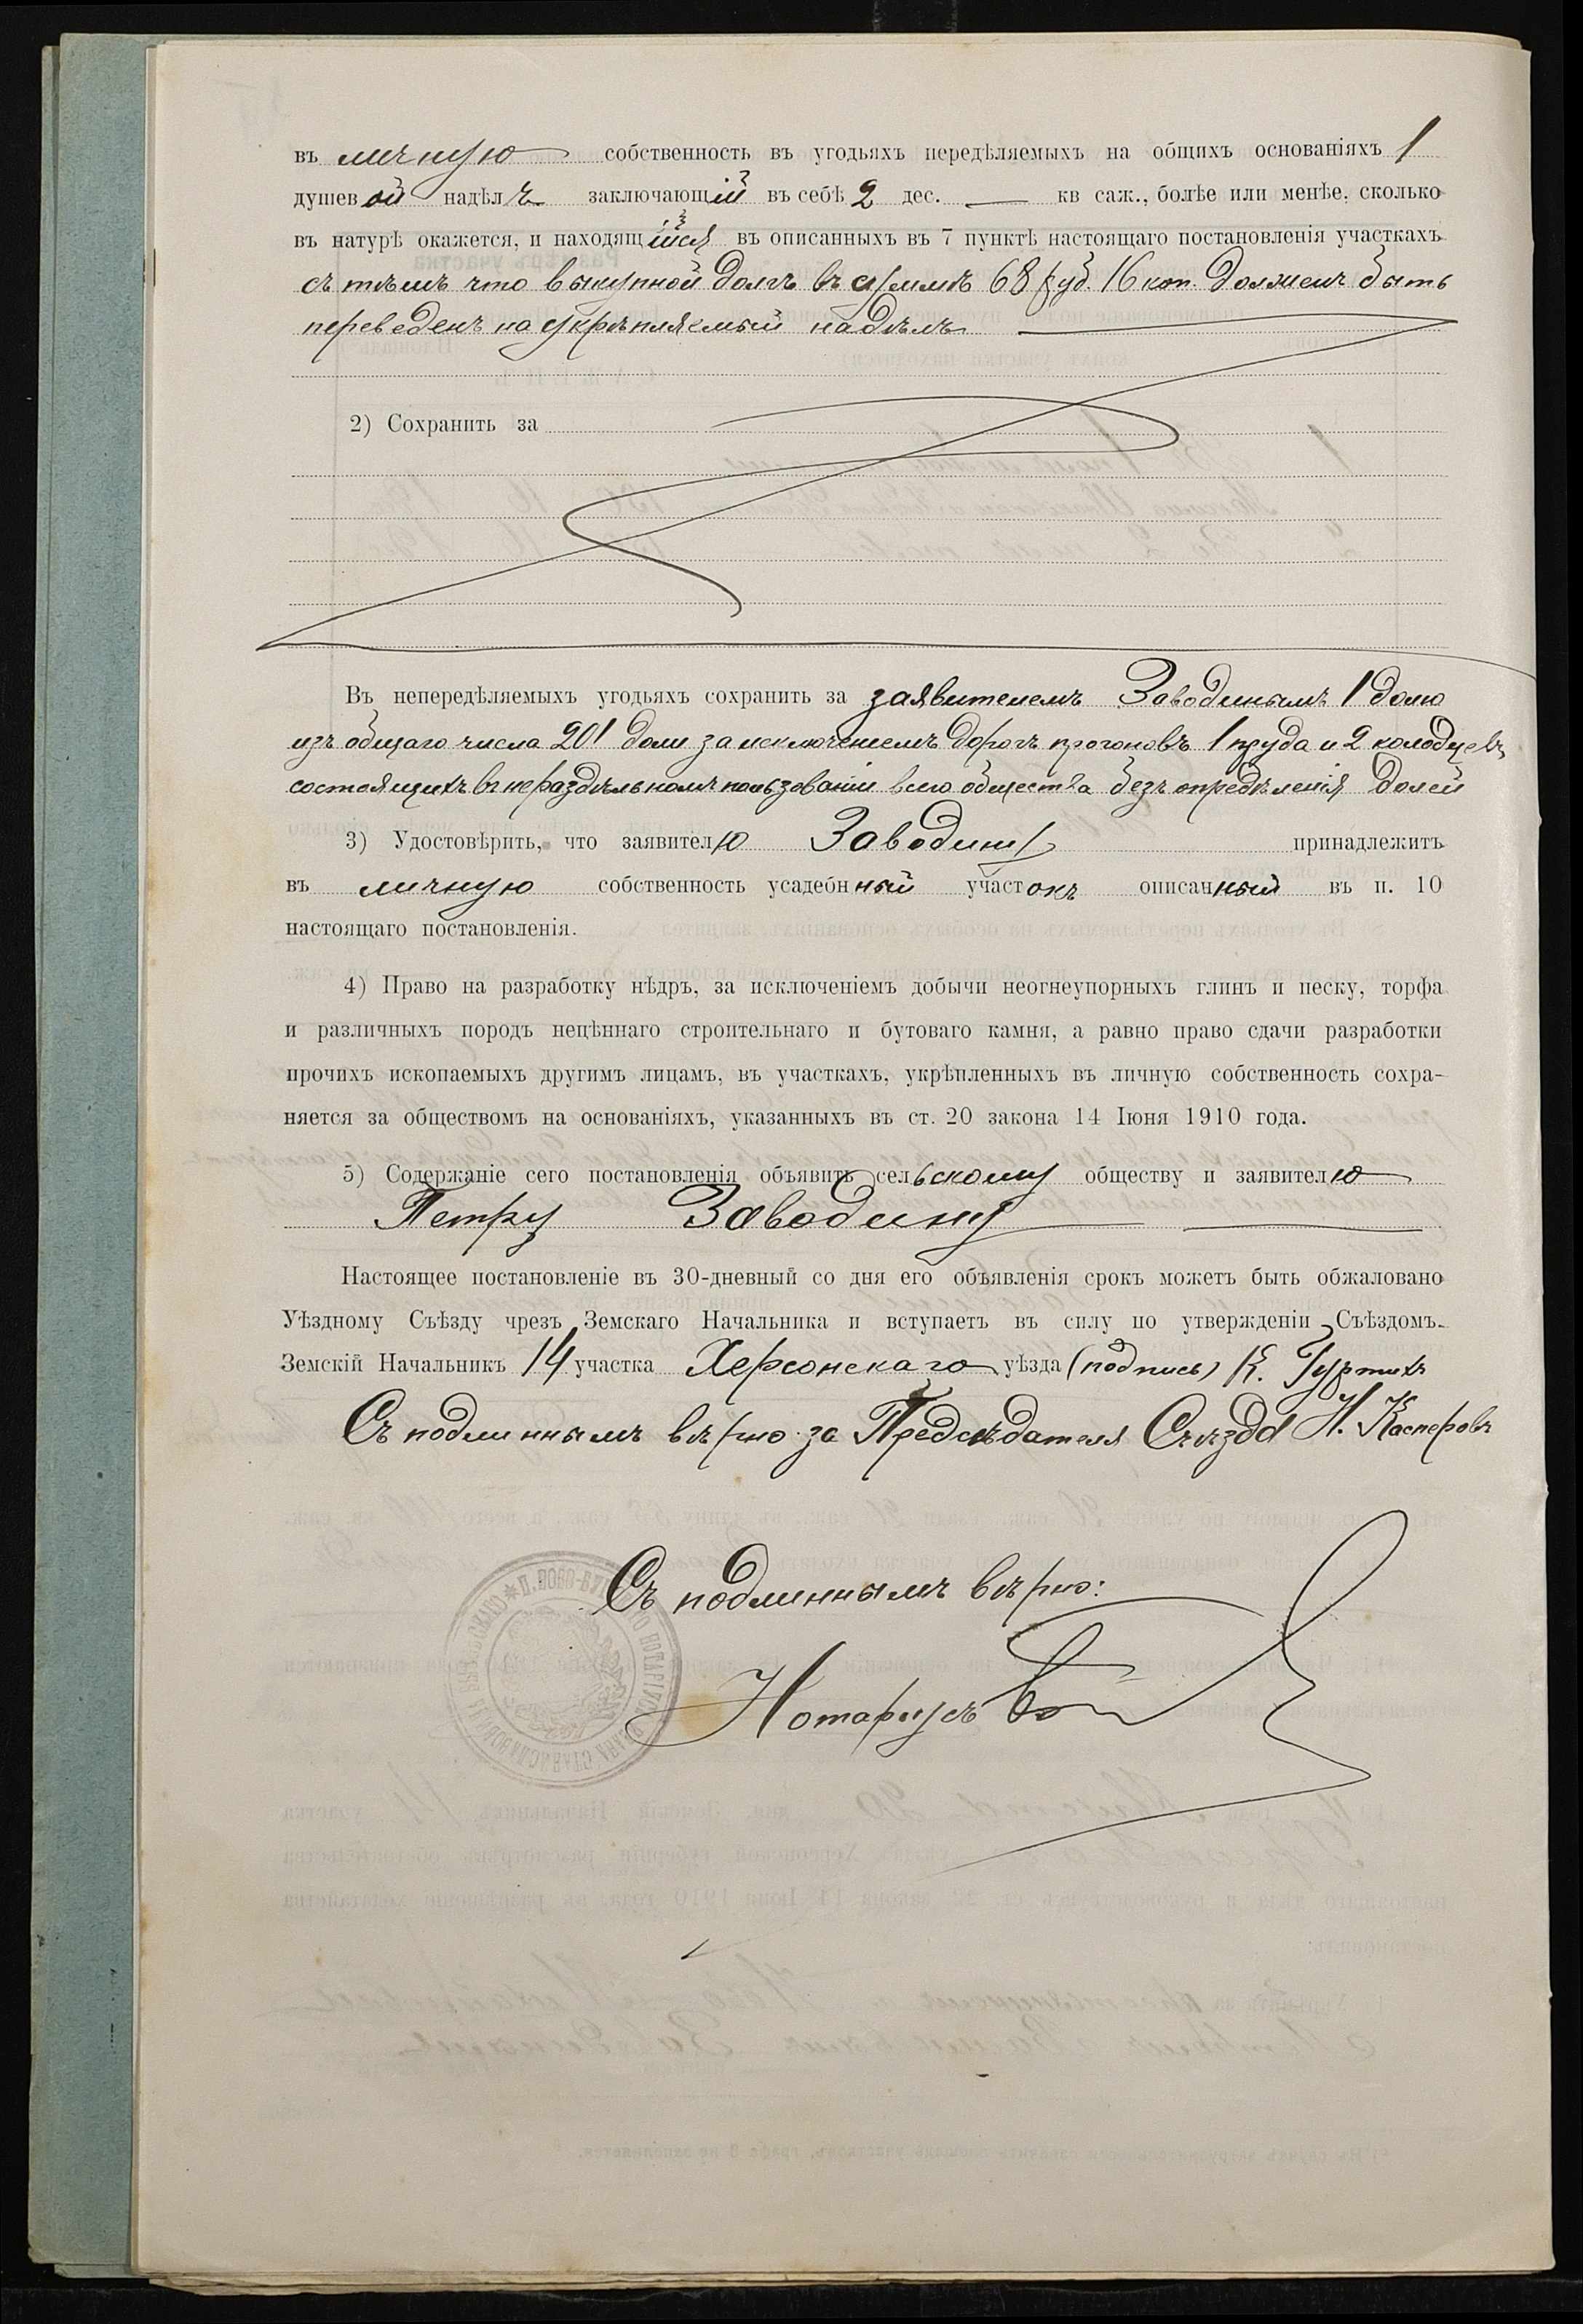 въ личную собственность въ угодьяхъ передѣляемыхъ на общихъ основаніяхъ 1
душевой надѣлъ заключающій въ себѣ 2 дес. — кв саж., болѣе или менѣе, сколько
въ натурѣ окажется, и находящійся въ описанныхъ въ 7 пунктѣ настоящаго постановленія участкахъ
съ тѣмъ что выкупной долгъ въ суммѣ 68 руб. 16 коп. долженъ быть
переведенъ на укрѣпляемый надѣлъ
2) Сохранить за
Въ непередѣляемыхъ угодьяхъ сохранить за заявителемъ Заводинымъ 1 долю
изъ общаго числа 201 доли за исключеніемъ дорогъ прогоновъ 1 пруда и 2 колодцевъ
состоящихъ въ нераздѣльномъ пользованіи всего общества безъ опредѣленія долей
3) Удостовѣрить, что заявителю Заводину принадлежитъ
въ личную собственность усадебнный участокъ описанный въ п. 10
настоящаго постановленія.
4) Право на разработку нѣдръ, за исключеніемъ добычи неогнеупорныхъ глинъ и песку, торфа
и различныхъ породъ нецѣннаго строительнаго и бутоваго камня, а равно право сдачи разработки
прочихъ ископаемыхъ другимъ лицамъ, въ участкахъ, укрѣпленныхъ въ личную собственность сохра-
няется за обществомъ на основаніяхъ, указанныхъ въ ст. 20 закона 14 Іюня 1910 года.
5) Содержаніе сего постановленія объявить сельскому обществу и заявителю
Петру Заводину
Настоящее постановленіе въ 30-дневный со дня его объявленія срокъ можетъ быть обжаловано
Уѣздному Съѣзду чрезъ Земскаго Начальника и вступаетъ въ силу по утвержденіи Съѣздомъ.
Земскій Начальникъ 14 участка Херсонскаго уѣзда (подпись) К. Гуртихъ
Съ подлиннымъ вѣрно за Предсѣдателя Съѣзда Н. Касперовъ
Съ подлиннымъ вѣрно:
Нотаріусъ